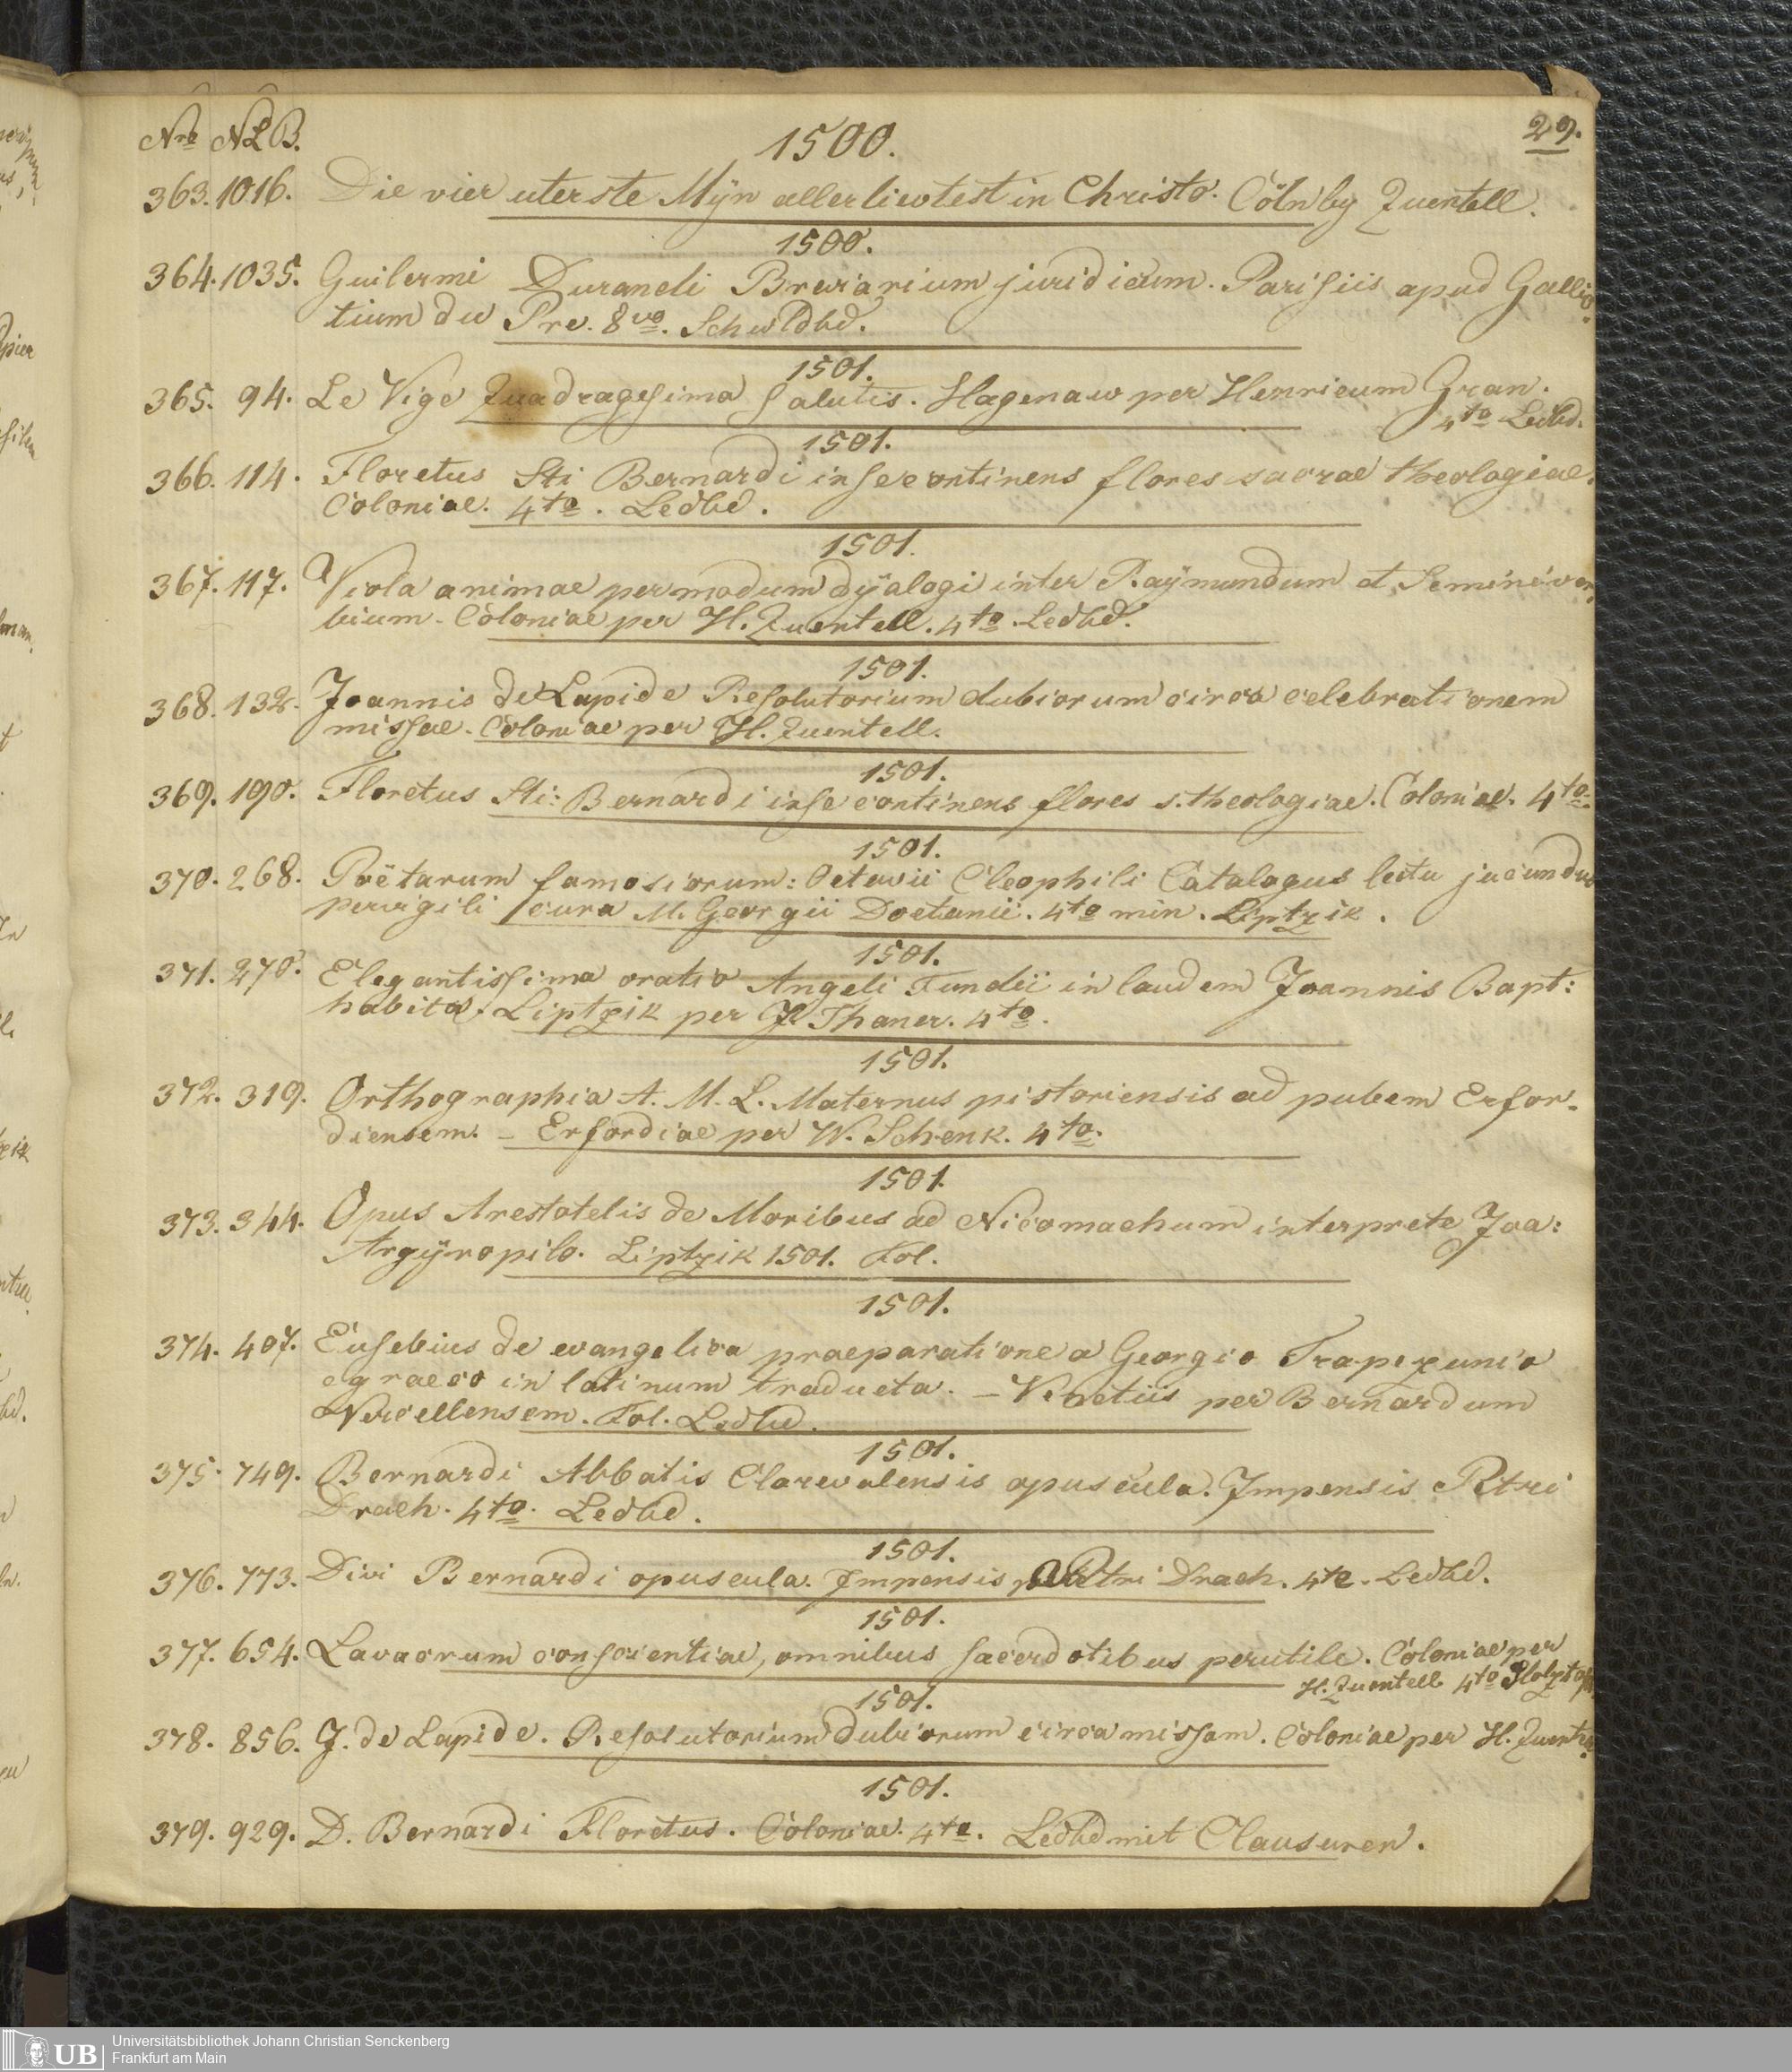 Nro NLB. 1500. 29.
363. 1016. Die vier uterste Mÿn allerliewtest in Christo. Cöln by Zuentell.
1500.
364. 1035. Guilermi Durandi Breviarium juridicum. Parisiis apud Gallio-
tium du Pre. 8vo. SchwLdbd.
1501.
365. 94. Le Vige Quadragesima salutis. Hagenaw per Henricum Gran.
4to Ledbd.
1501.
366. 114. Floretus Sti Bernardi in se continens flores sacrae theologiae.
Coloniae. 4to. Ledbd.
1501.
367. 117. Viola animae per modum dÿalogi inter Raÿmundum et Seminiver-
bium. Coloniae per H. Quentell. 4to. Ledbd.
1501.
368. 132. Joannis de Lapide Resolutorium dubiorum circa celebrationem
missae. Coloniae per H. Zuentell.
1501.
369. 190. Floretus Sti: Bernardi in se continens flores s. theologiae. Coloniae. 4to.
1501.
370. 268. Poëtarum famosiorum: Octavii Cleophili Catalogus lectu jucundus
pervigili cura M. Georgii Dottanii. 4to min. Liptzik.
1501.
371. 270. Elegantissima oratio Angeli Fundii in laudem Joannis Bapt:
habita. Liptzik per J. Thaner. 4to.
1501.
372. 319. Orthographia A. M. L. Maternus pistoriensis ad pubem Erfor-
diensem. – Erfordiae per W. Schenk. 4to.
1501.
373. 344. Opus Arestotelis de Moribus ad Nicomachum interprete Joa:
Argÿropilo. Liptzik 1501. Fol.
1501.
374. 407. Eusebius de evangelica praeparatione a Georgio Trapezunio
e graeco in latinum traducta. – Venetiis per Bernardum
Vercellensem. Fol. Ledbd.
1501.
375. 749. Bernardi Abbatis Clarevalensis opuscula. Impensis Petri
Drach. 4to. Ledbd.
1501.
376. 773. Divi Bernardi opuscula. Impensis Petri Drach. 4to. Ledbd.
1501.
377. 654. Lavacrum conscientiae, omnibus sacerdotibus perutile. Coloniae per
H. Quentell 4to
1501.
378. 856. J. de Lapide. Resolutorium dubiorum circa missam. Coloniae per H. Zuentell.
1501.
379. 929. D. Bernardi Floretus. Coloniae. 4to. Ledbd mit Clausuren.
UB Universitätsbibliothek Johann Christian Senckenberg
Frankfurt am Main